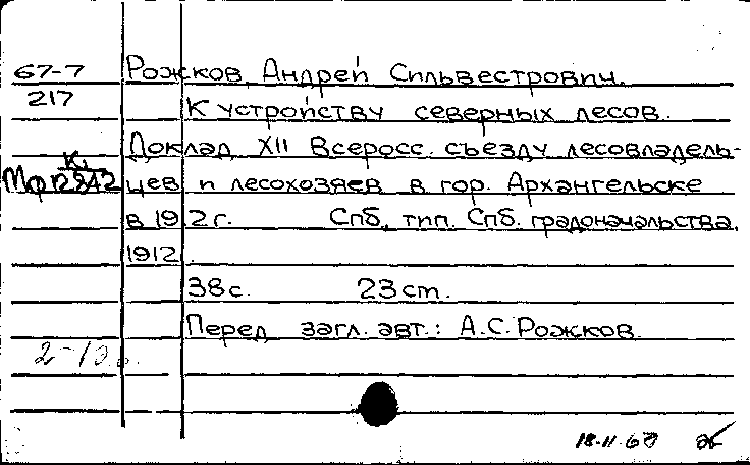 67-7 Рожков, Андрей Сильвестрович.
217 К устройству северных лесов.
Доклад XII Всеросс. съезду лесовладель-
К1
Мф 12842 цев и лесохозяев в гор. Архангельске
в 1912 г. Спб, тип. Спб. градоначальства,
1912.
38 с. 23 см.
Перед загл. авт.: А.С. Рожков.